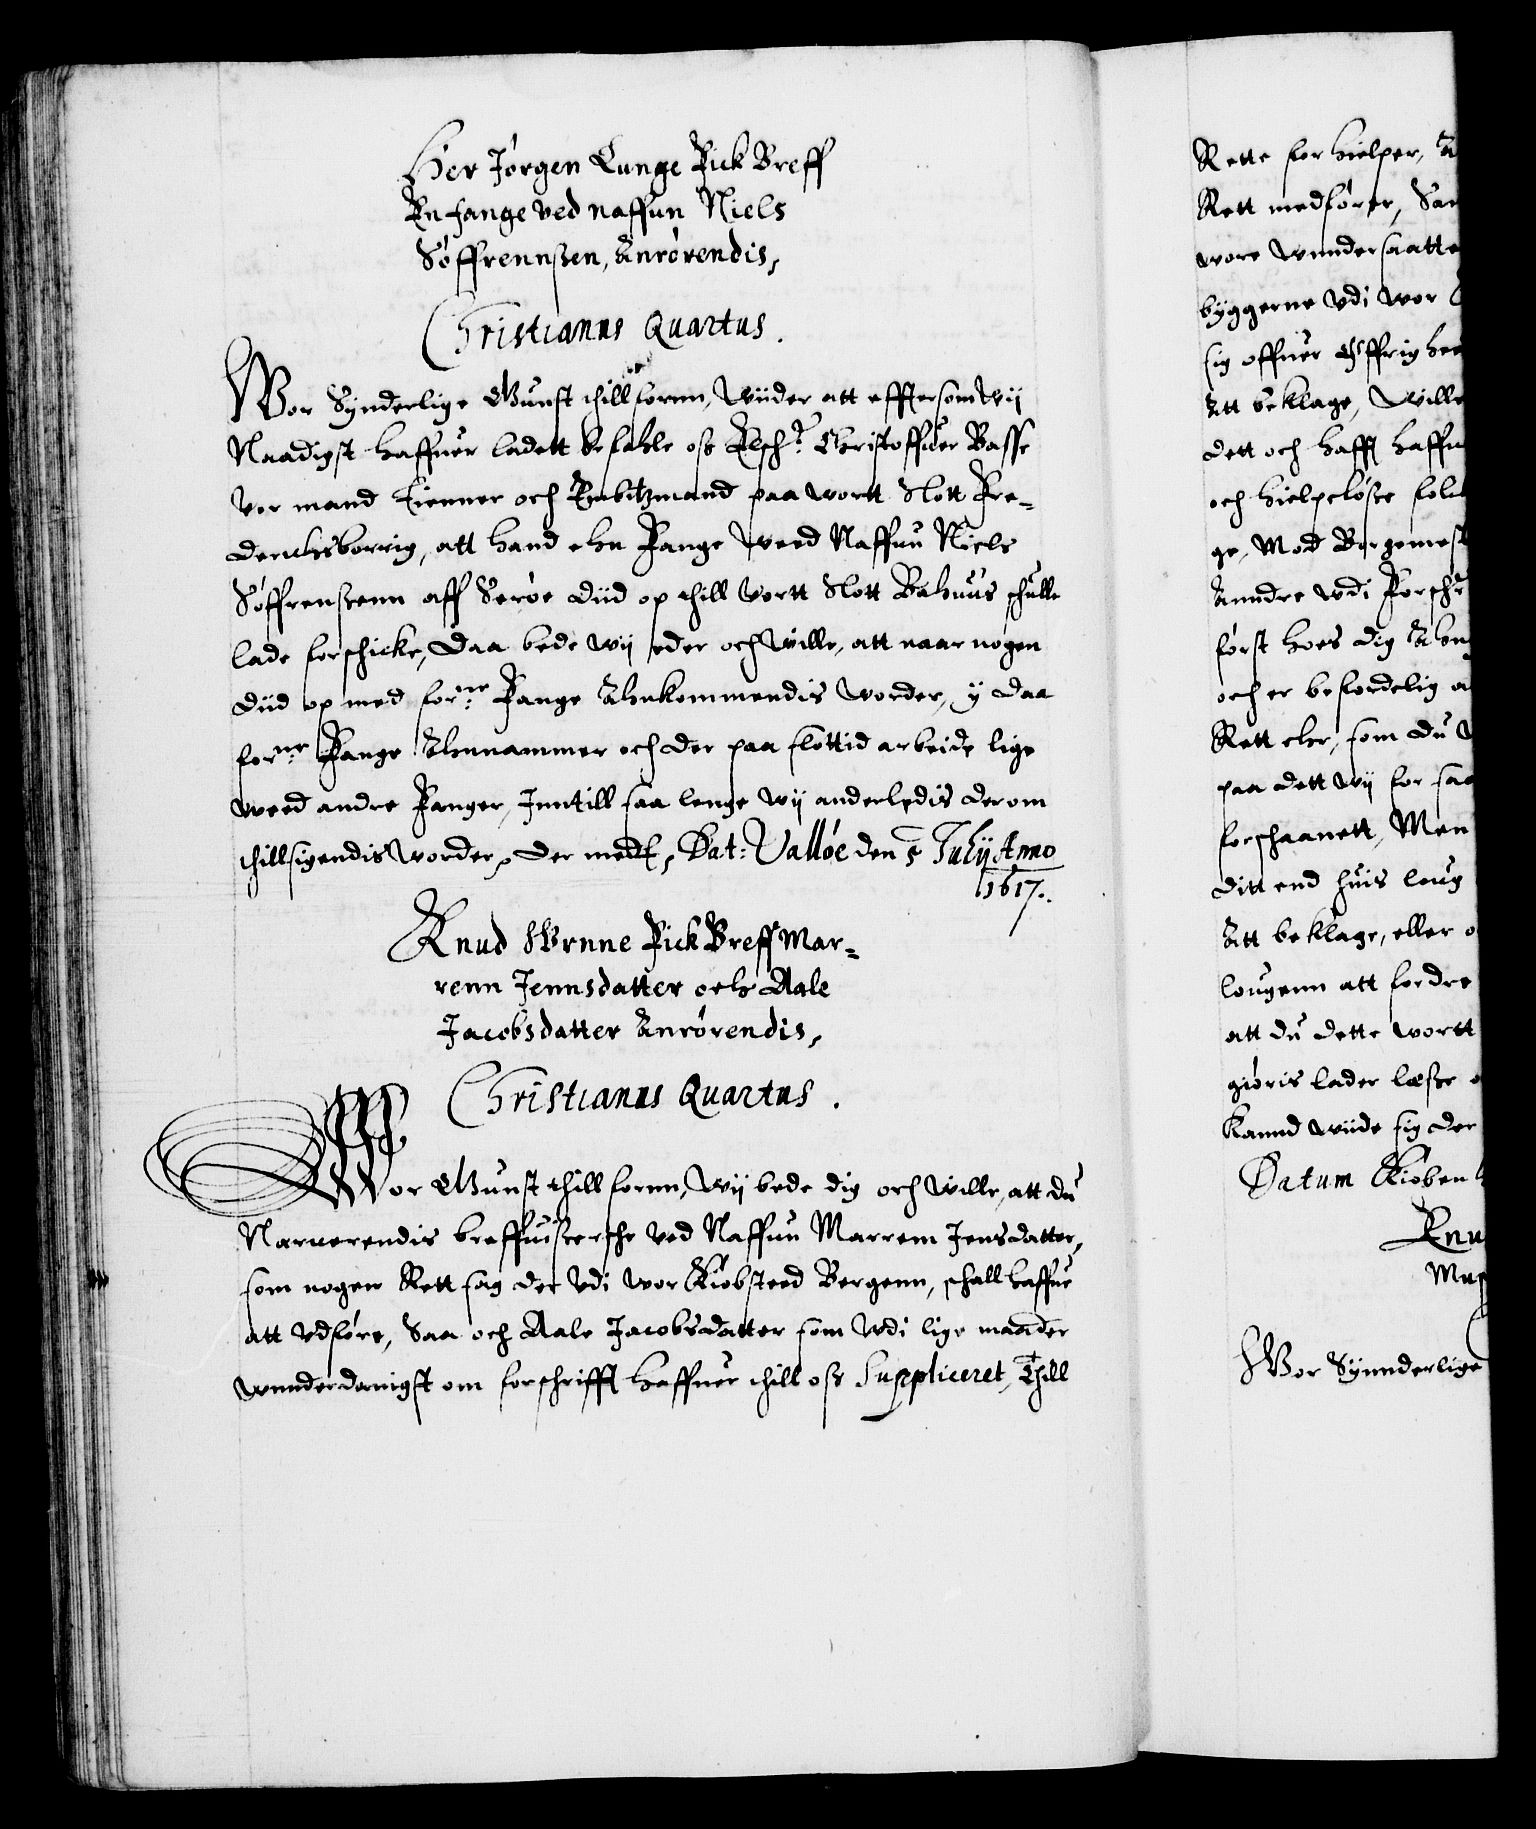 Her Jørgen Lunge Fick Breff
En fange ved naffun Niels
Søffrennsen, Anrørendis,
Christianus Quartus.
Wor Synderlige Gunst thill fornn, Wiider att effttersom Wij
Naadigst haffuer ladett befahle oss Elsch: Christoffuer Basse
Vor mand Tienner och Embitzmand paa wortt Slott Fre-
derichsborrig, att hand ehn Fange Weed Naffuu Niels
Søffrenssenn aff Serøe diid op thill Vortt Slott Bahuus schulle
lade forschicke, Daa bede wij eder och Wille, att naar nogen
diid op med forne: Fange Ahnkommendis Worder, y daa
forne: Fange Ahnnammer och der paa slottid arbeide lige
weed andre Fanger, Inntill saa lenge wij anderledis derom
thillsigendis Worder, Der medt, Dat: Valløe den 5 Julij Anno
1617.
Knud Urnne Fick Breff Mar-
renn Jennsdatter och Aale
Jacobsdatter Anrørendis,
Christianus Quartus.
Wor Gunst thill fornn, Wij bede dig och Wille, att du
Nærverendis breffuissersche ved Naffuu Marrem Jensdatter,
som nogen Rett sag der Vdi wor Kiøbsteed Bergenn, schall haffue
att Vdføre, Saa och Aale Jacobsdatter som Vdi lige maader
wnnderdanigst om forschrifft haffuer thill oss Suppliceret, Thill
Rette forhielper,
Rett medfører,
wore Wunndersaatte
byggerne Vdi wor
sig offuer
Att beklage, Wille
dett och hafft haffu
och hielpeløsse
ge, Mod Borgemest
Anndre Vdi
først hoes dig
och er befordelig
Rett eler, som du
paa dett wij for
forschaanett, Men
ditt end huis loug
Att beklage, eller
lougenn att fordre
att du dette wortt
giøris lader læsse
Kannd wiide sig der
Datum Kiøben
Knu
Wor Synnderlige